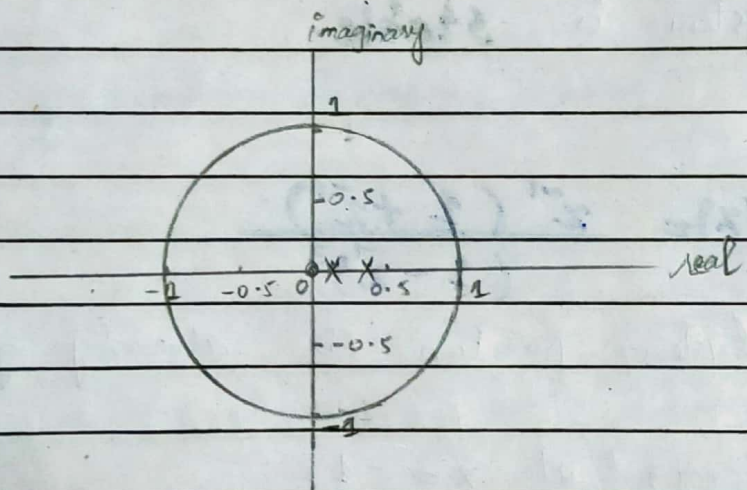 imaginary.
1
0.5
real
-1 -0.5 0 0.5 1
-0.5
-1